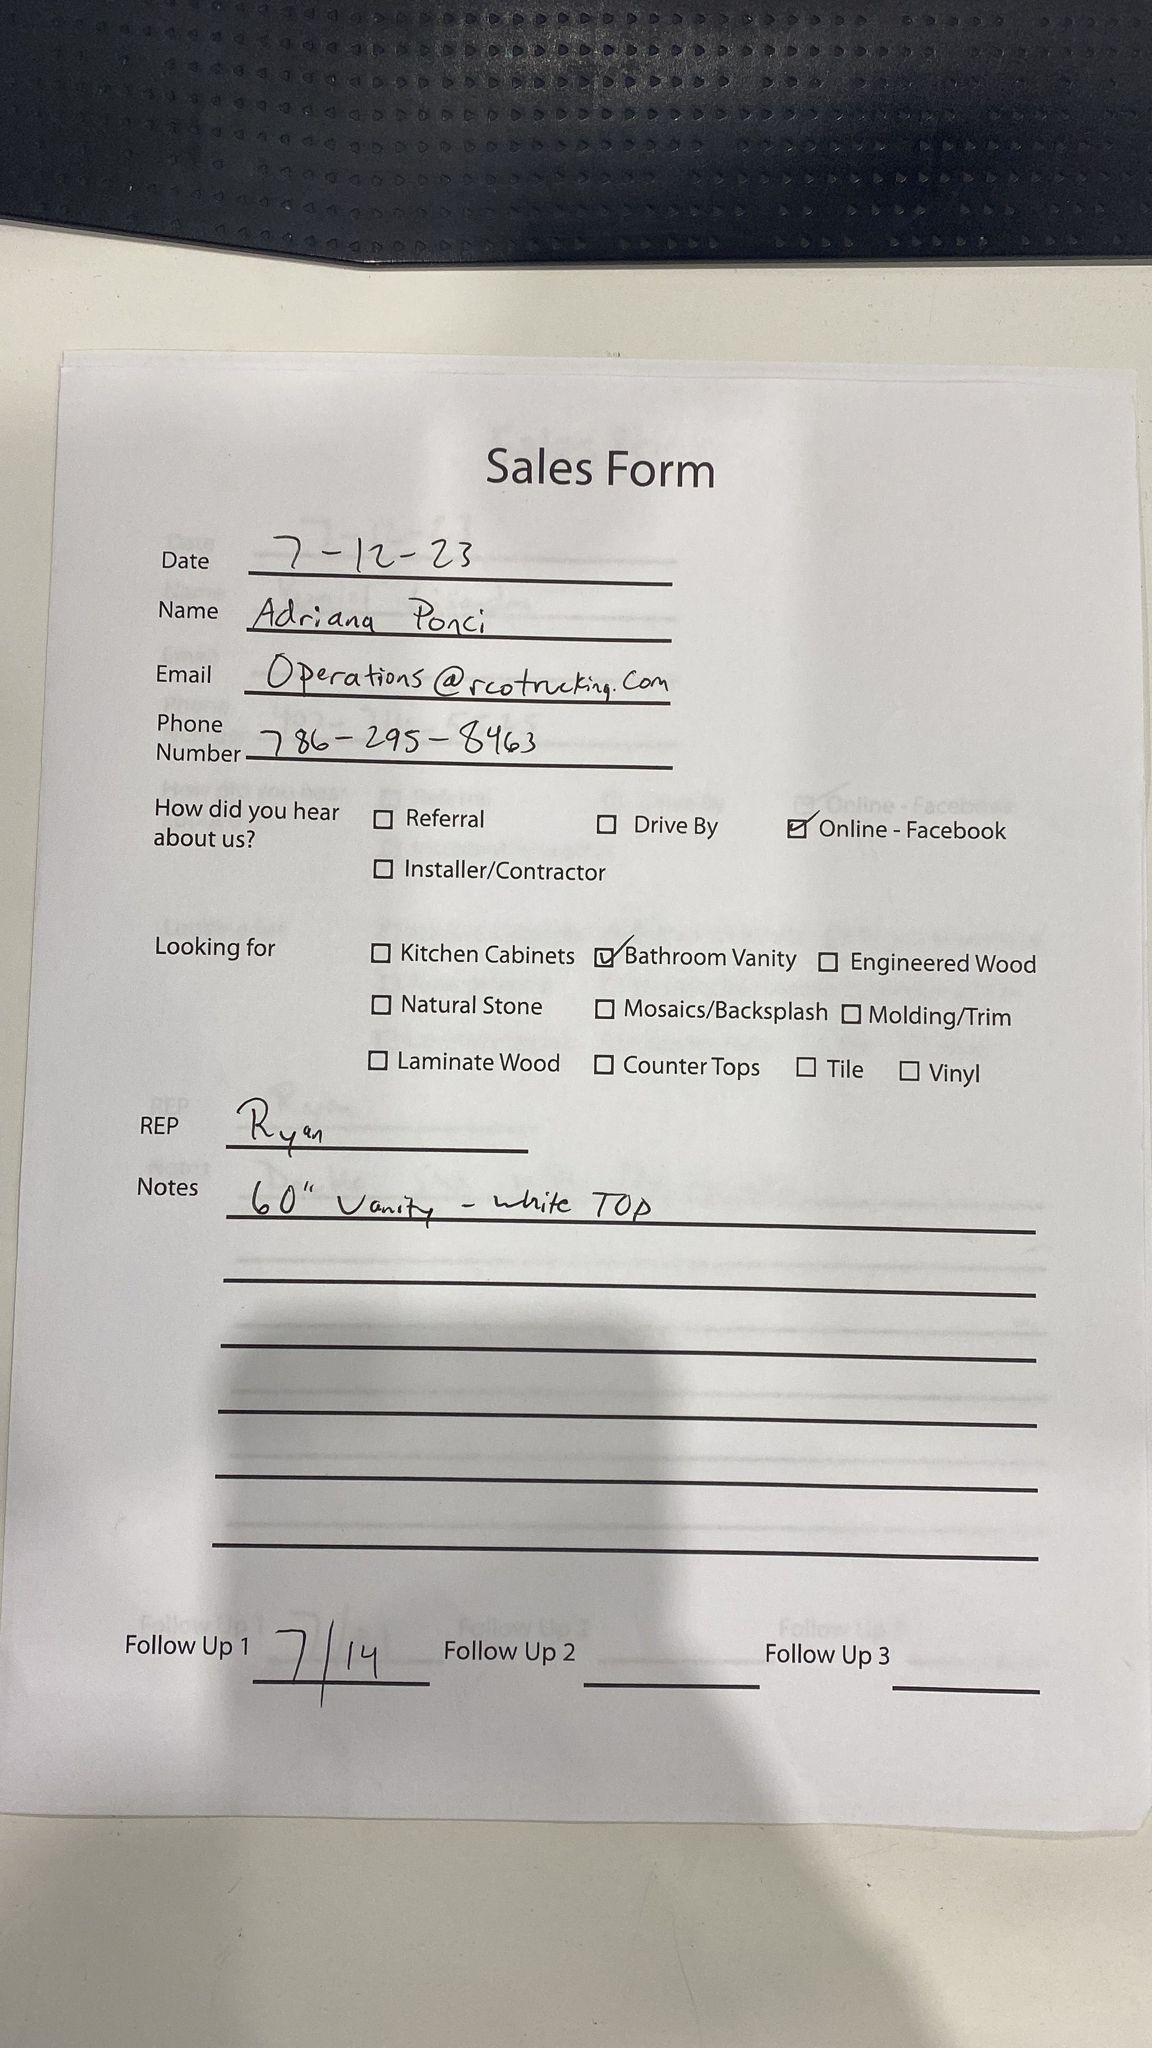 Sales Form
Date 7-12-23
Name Adriana Ponci
Email Operations@rcotrucking.com
Phone
Number 786-295-8463
How did you hear about us? ☐ Referral ☐ Drive By ☑ Online - Facebook
☐ Installer/Contractor
Looking for ☐ Kitchen Cabinets ☑ Bathroom Vanity ☐ Engineered Wood
☐ Natural Stone ☐ Mosaics/Backsplash ☐ Molding/Trim
☐ Laminate Wood ☐ Counter Tops ☐ Tile ☐ Vinyl
REP Ryan
Notes 60" Vanity - white TOP
Follow Up 1 7/14 Follow Up 2 Follow Up 3